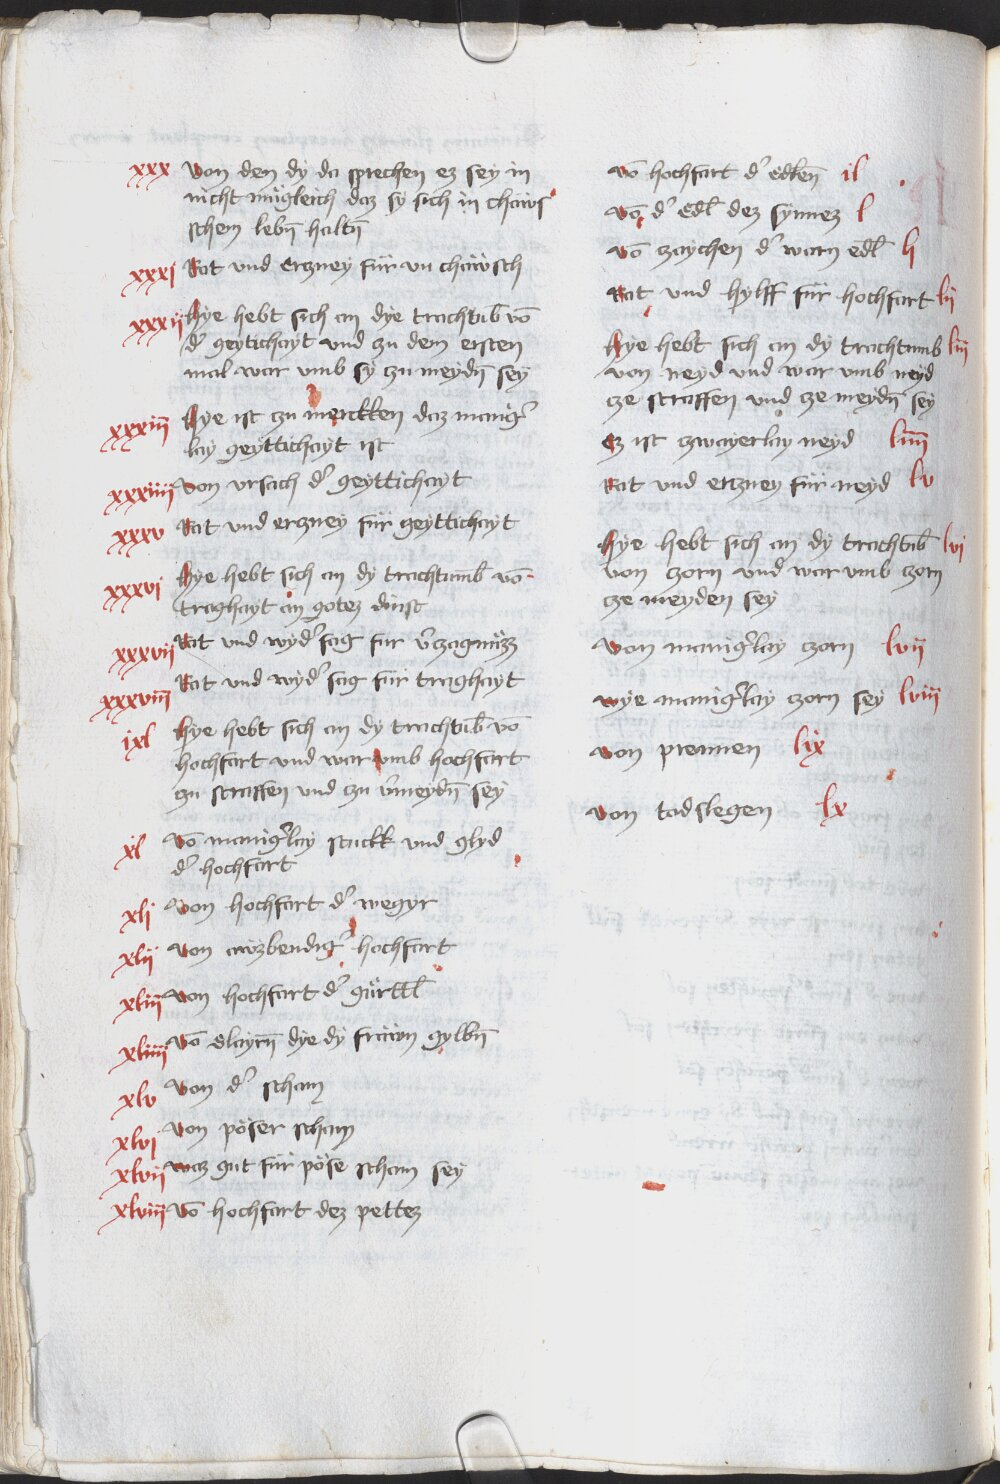 xxx Von den dy da sprechen ez sey in
nicht mügleich daz sy sich in chäws
schem lebn̄ haltn̄
xxxj Rat vnd erczney für vn chäwsch
xxxij Hye hebt sich an dye trachtūb vō
d' geytichayt vnd zu dem ersten
mal war vmb sy zu meydn̄ sey
xxxiij Hye ist zu merckken daz manig'
lay geyttichayt ist
xxxiiij Von vrsach d' geyttichayt
xxxv Rat vnd erczney für geyttichayt
xxxvi Hye hebt sich an dy trachtumb vō
traghayt an gotez dinst
xxxvij Rat vnd wyd' sag für v'zagnüzz
xxxviij Rat vnd wyd' sag für traghayt
ixl Hye hebt sich an dy trachtūb vō
hochfart vnd war vmb hochfart
zu straffen vnd zu v'meydn̄ sey
xl Vō manig'lay stuckk vnd glyd
d' hochfart
xlj Von hochfart d' wegyr
xlij Von auzbendig' hochfart
xliij Von hochfart d' gürttl
xliiij Vō slayrn̄ dye dy frawn gylbn̄
xlv Von d' scham
xlvj Von pöser scham
xlvij waz gut für pöse scham sey
xlviij Vō hochfart dez pettez
Vō hochfart d' edlen̄ il
Vō d' Edl dez synnez l
Vō zaychen d' warn edl lj
Rat vnd hylff für hochfart lij
Hye hebt sich an dy trachtumb liij
von neyd vnd war vmb neyd
ze straffen vnd ze meydn̄ sey
Ez ist zwayerlay neyd liiij
Rat vnd erczney für neyd lv
Hye hebt sich an dy trachtūb lvj
von zorn vnd war vmb zorn
ze meyden sey
Von manig'lay zorn lvij
wye manig'lay zorn sey lviij
Von prennen lix
Von todslegen lx